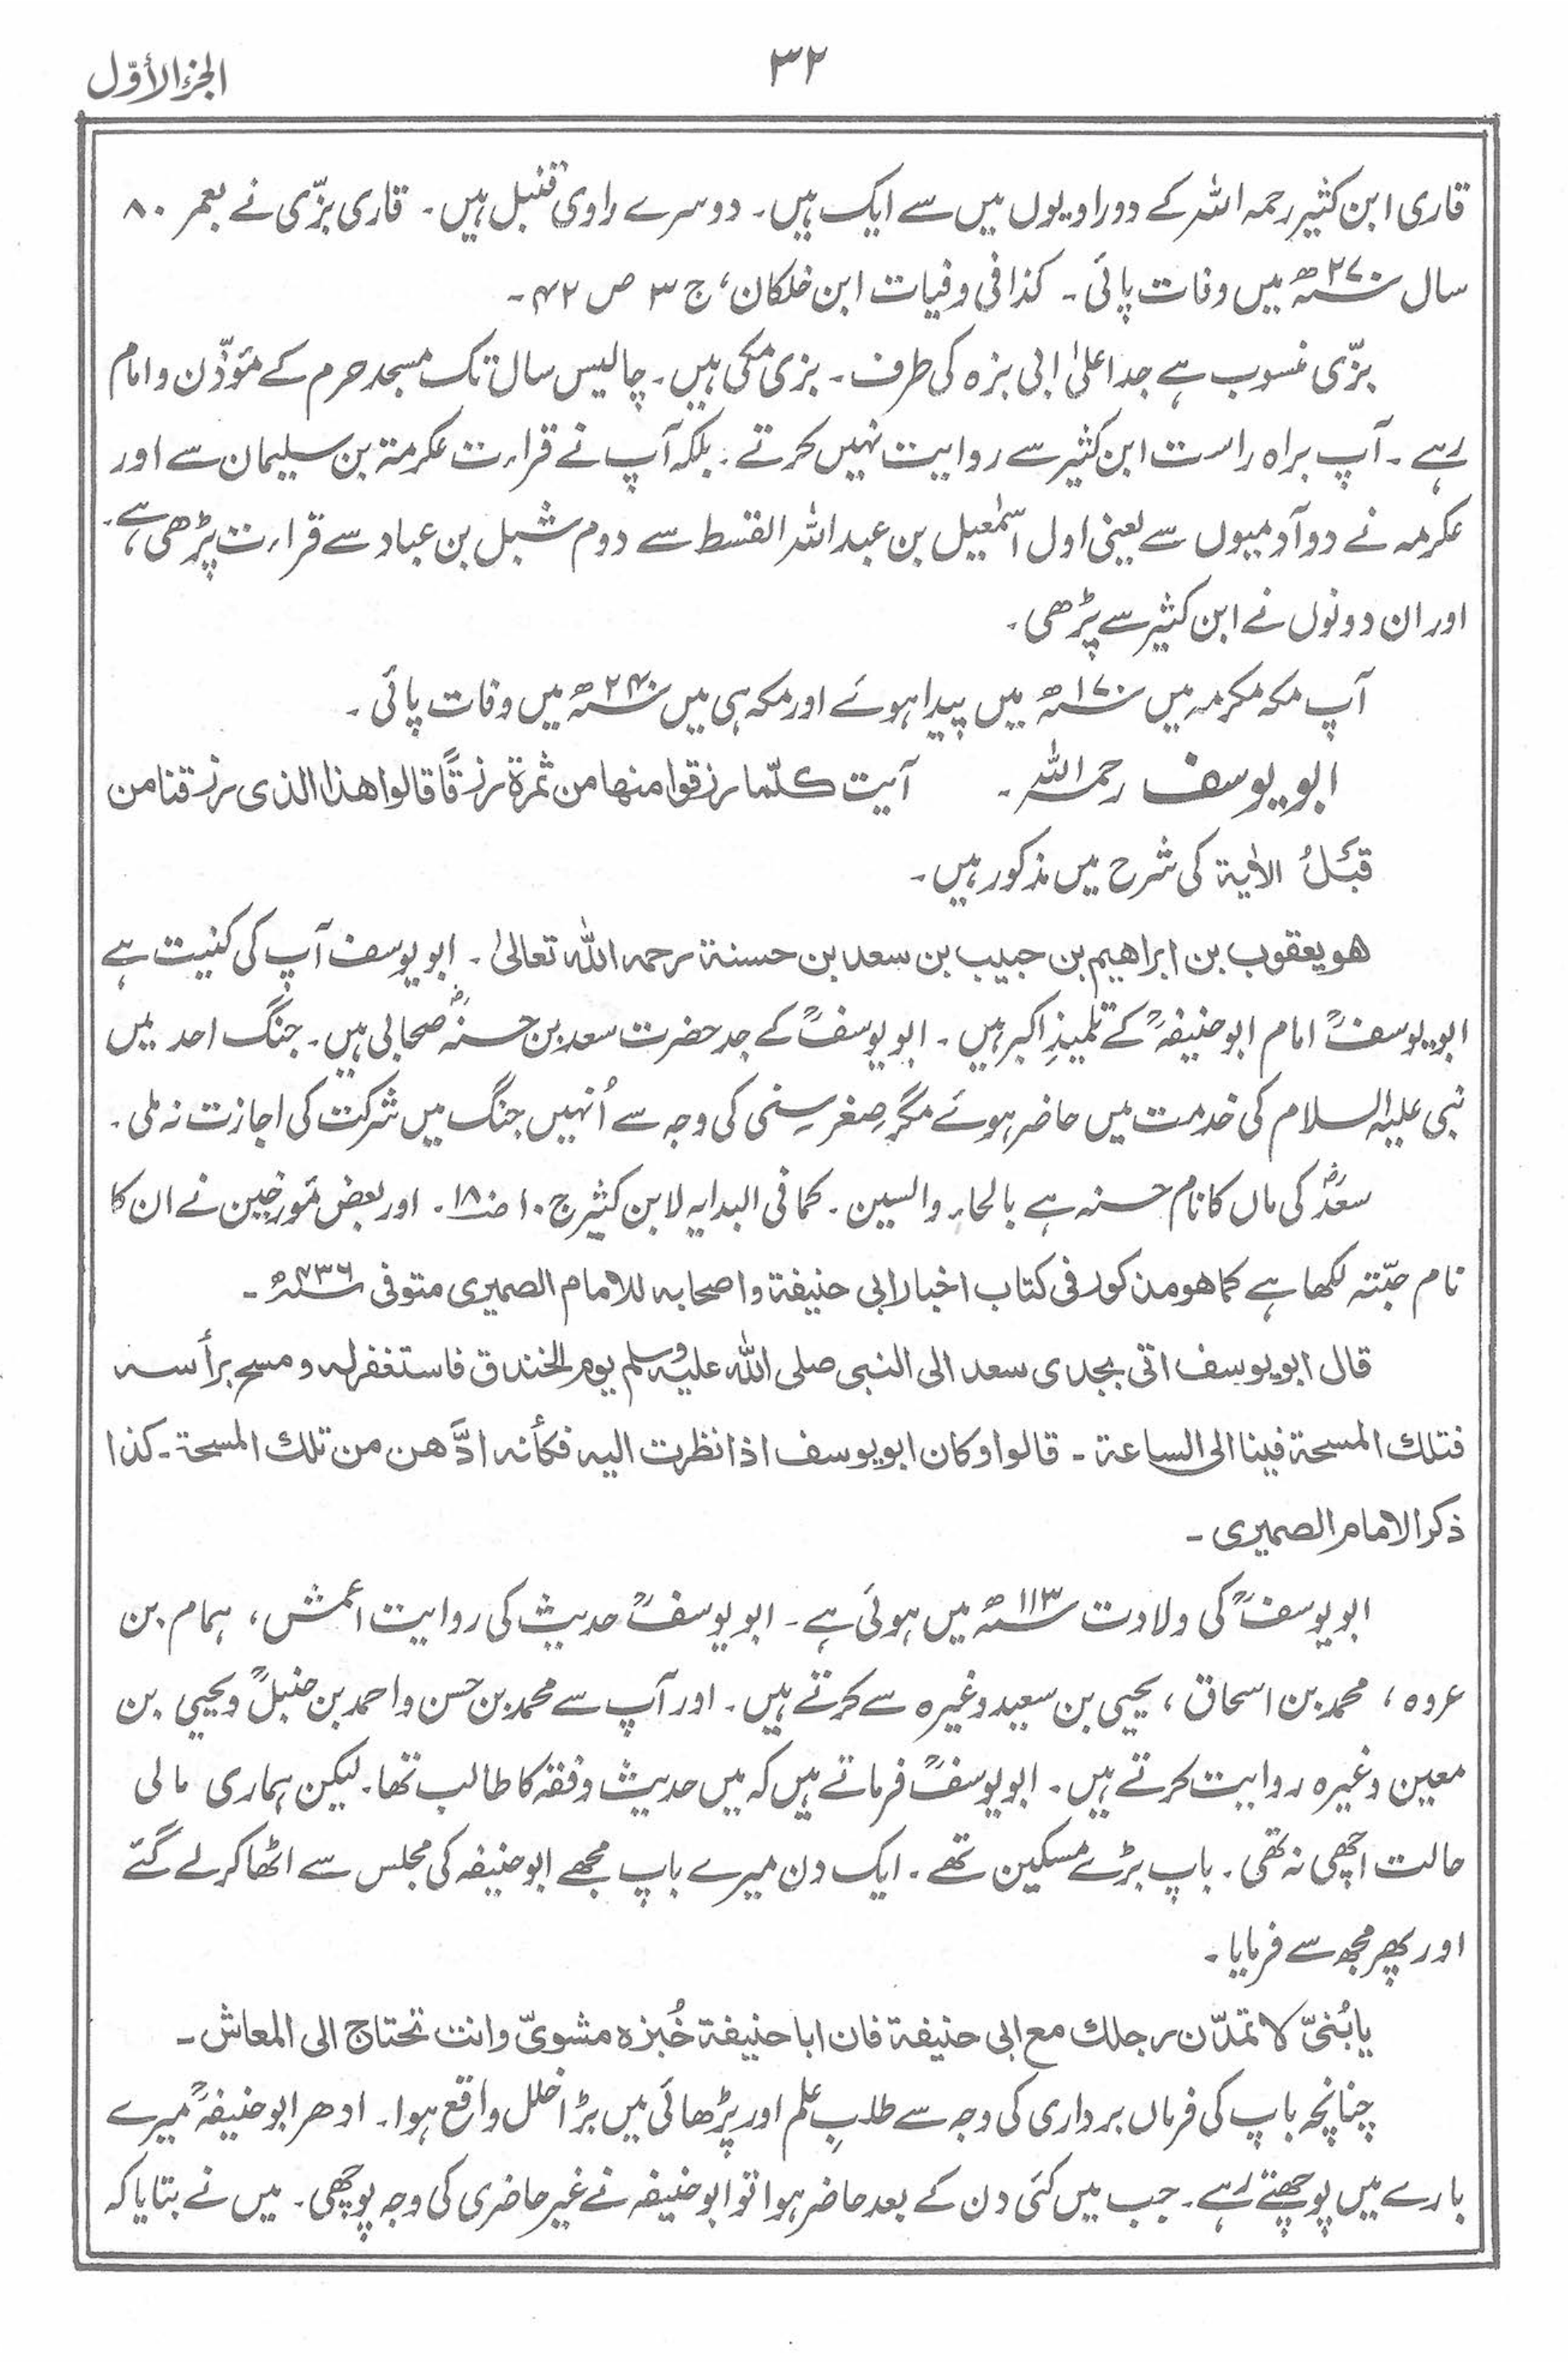 ۳۲
الجزء الأوّل
قاری ابن کثیر رحمہ اللہ کے دو راویوں میں سے ایک ہیں۔ دوسرے راوی قنبل ہیں۔ قاری بزّی نے بعمر ۸۰
سال ۲۷۰ھ میں وفات پائی۔ کذا فی وفیات ابن خلکان، ج ۳ ص ۴۲۔
بزّی منسوب ہے جد اعلیٰ ابی بزہ کی طرف۔ بزی مکی ہیں۔ چالیس سال تک مسجد حرم کے مؤذّن و امام
رہے۔ آپ براہ راست ابن کثیر سے روایت نہیں کرتے۔ بلکہ آپ نے قراءت عکرمۃ بن سلیمان سے اور
عکرمہ نے دو آدمیوں سے یعنی اول اسمٰعیل بن عبد اللہ القسط سے دوم شبل بن عباد سے قراءت پڑھی ہے۔
اور ان دونوں نے ابن کثیر سے پڑھی۔
آپ مکہ مکرمہ میں ۱۷۰ھ میں پیدا ہوئے اور مکہ ہی میں ۲۴۰ھ میں وفات پائی۔
ابو یوسف رحمہ اللہ۔ آیت کلّما رزقوا منها من ثمرة رزقًا قالوا هذا الذی رزقنا من
قبلُ الاٰیۃ کی شرح میں مذکور ہیں۔
هو یعقوب بن ابراهیم بن حبیب بن سعد بن حسنة رحمه الله تعالیٰ۔ ابو یوسف آپ کی کنیت ہے
ابو یوسفؒ امام ابو حنیفہؒ کے تلمیذِ اکبر ہیں۔ ابو یوسفؒ کے جد حضرت سعد بن حسنہؓ صحابی ہیں۔ جنگ احد میں
نبی علیہ السلام کی خدمت میں حاضر ہوئے مگر صِغر سِنی کی وجہ سے اُنہیں جنگ میں شرکت کی اجازت نہ ملی۔
سعدؓ کی ماں کا نام حسنہ ہے بالحاء والسین۔ کما فی البدایہ لابن کثیر ج ۱۰ ص ۱۸۰۔ اور بعض مؤرخین نے ان کا
نام حبّتہ لکھا ہے کما هو مذکور فی کتاب اخبار ابی حنیفة و اصحابه للامام الصمیری متوفی ۴۳۶ھ۔
قال ابو یوسف اتی بجدی سعد الی النبی صلی الله علیه وسلم یوم الخندق فاستغفر له و مسح برأسه
فتلك المسحة فینا الی الساعة۔ قالوا و کان ابو یوسف اذا نظرت الیه فکأنه ادَّهن من تلك المسحة۔ کذا
ذکر الامام الصمیری۔
ابو یوسفؒ کی ولادت ۱۱۳ھ میں ہوئی ہے۔ ابو یوسفؒ حدیث کی روایت اعمش، ہمام بن
عروہ، محمد بن اسحاق، یحیی بن سعید وغیرہ سے کرتے ہیں۔ اور آپ سے محمد بن حسن و احمد بن حنبلؒ و یحیی بن
معین وغیرہ روایت کرتے ہیں۔ ابو یوسفؒ فرماتے ہیں کہ میں حدیث و فقہ کا طالب تھا۔ لیکن ہماری مالی
حالت اچھی نہ تھی۔ باپ بڑے مسکین تھے۔ ایک دن میرے باپ مجھے ابو حنیفہ کی مجلس سے اٹھا کر لے گئے
اور پھر مجھ سے فرمایا۔
یا بُنیّ لا تمدّن رجلك مع ابی حنیفة فان ابا حنیفة خُبزه مشویّ و انت تحتاج الی المعاش۔
چنانچہ باپ کی فرماں برداری کی وجہ سے طلبِ علم اور پڑھائی میں بڑا خلل واقع ہوا۔ ادھر ابو حنیفہؒ میرے
بارے میں پوچھتے رہے۔ جب میں کئی دن کے بعد حاضر ہوا تو ابو حنیفہ نے غیر حاضری کی وجہ پوچھی۔ میں نے بتایا کہ